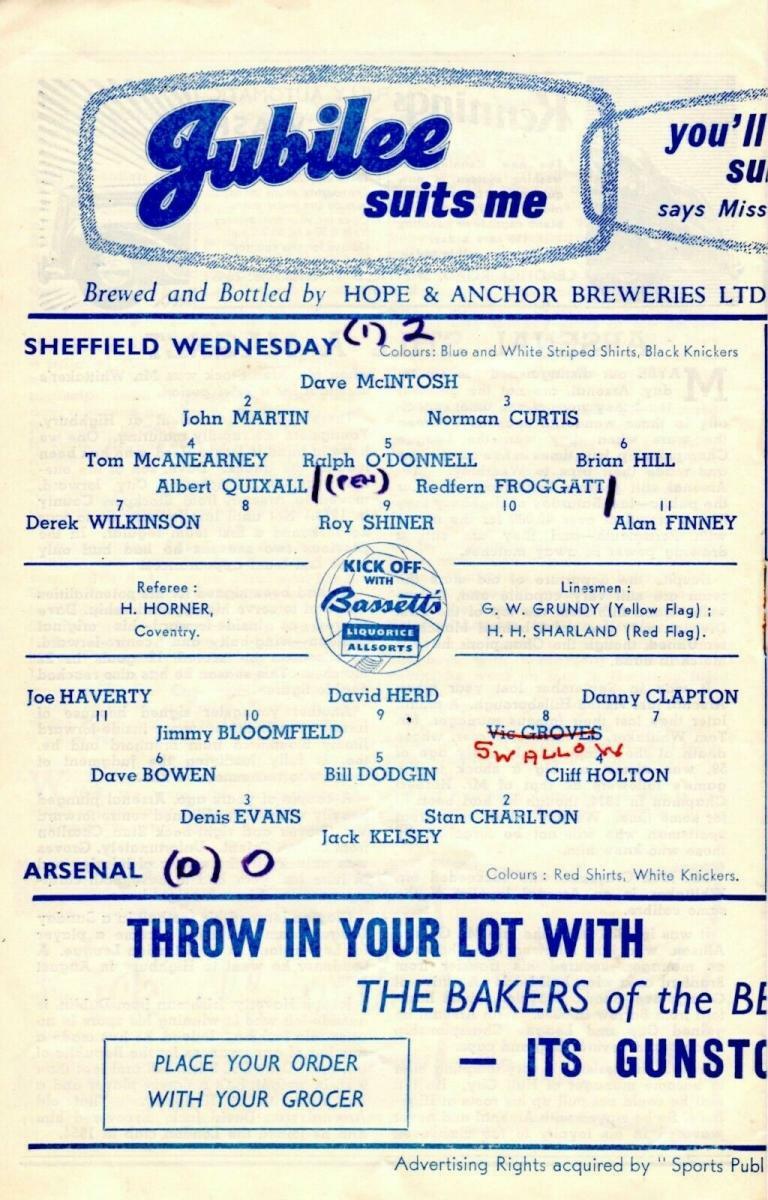 Jubilee
suits me
you'll
su
says Miss
Brewed and Bottled by HOPE & ANCHOR BREWERIES LTD
SHEFFIELD WEDNESDAY (1) 2 Colours: Blue and White Striped Shirts, Black Knickers
Dave McINTOSH
2 3
John MARTIN Norman CURTIS
4 5 6
Tom McANEARNEY Ralph O'DONNELL Brian HILL
Albert QUIXALL 1 (PEN) Redfern FROGGATT 1
7 8 9 10 11
Derek WILKINSON Roy SHINER Alan FINNEY
KICK OFF
WITH
Bassett's
LIQUORICE
ALLSORTS
Referee :
H. HORNER,
Coventry.
Linesmen :
G. W. GRUNDY (Yellow Flag) ;
H. H. SHARLAND (Red Flag).
Joe HAVERTY David HERD Danny CLAPTON
11 10 9 8 7
Jimmy BLOOMFIELD Vic GROVES
SWALLOW
6 5 4
Dave BOWEN Bill DODGIN Cliff HOLTON
3 2
Denis EVANS Stan CHARLTON
Jack KELSEY
ARSENAL (0) 0 Colours : Red Shirts, White Knickers.
THROW IN YOUR LOT WITH
THE BAKERS of the BE
— ITS GUNSTO
PLACE YOUR ORDER
WITH YOUR GROCER
Advertising Rights acquired by " Sports Publ